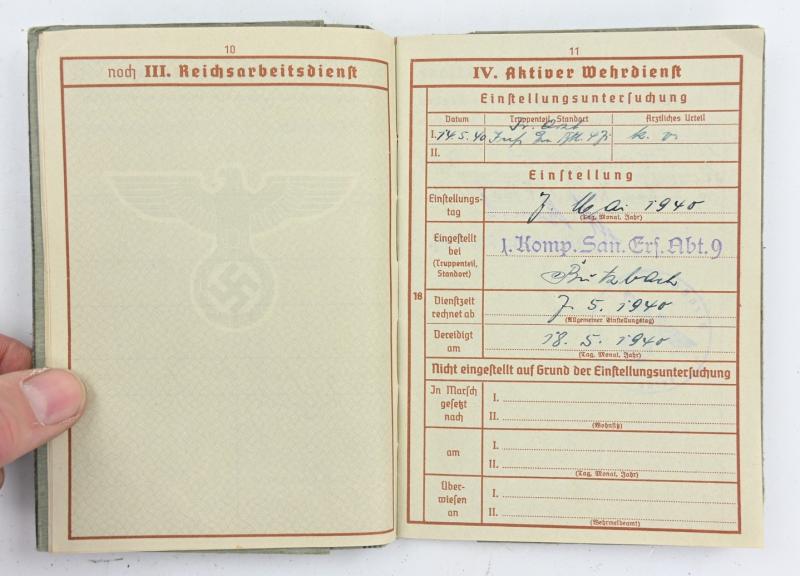 10
noch III. Reichsarbeitsdienst
11
IV. Aktiver Wehrdienst
Einstellungsuntersuchung
Datum Truppenteil, Standort Ärztliches Urteil
I. 14.5.40 k. v.
II.
Einstellung
Einstellungs-
tag
7. Mai 1940
(Tag, Monat, Jahr)
Eingestellt
bei
(Truppenteil,
Standort)
1. Komp. San. Ers. Abt. 9
Butzbach
18
Dienstzeit
rechnet ab
7. 5. 1940
(Allgemeiner Einstellungstag)
Vereidigt
am
18. 5. 1940
(Tag, Monat, Jahr)
Nicht eingestellt auf Grund der Einstellungsuntersuchung
In Marsch
gesetzt
nach
I.
II.
(Wohnsitz)
am
I.
II.
(Tag, Monat, Jahr)
Über-
wiesen
an
I.
II.
(Wehrmeldeamt)